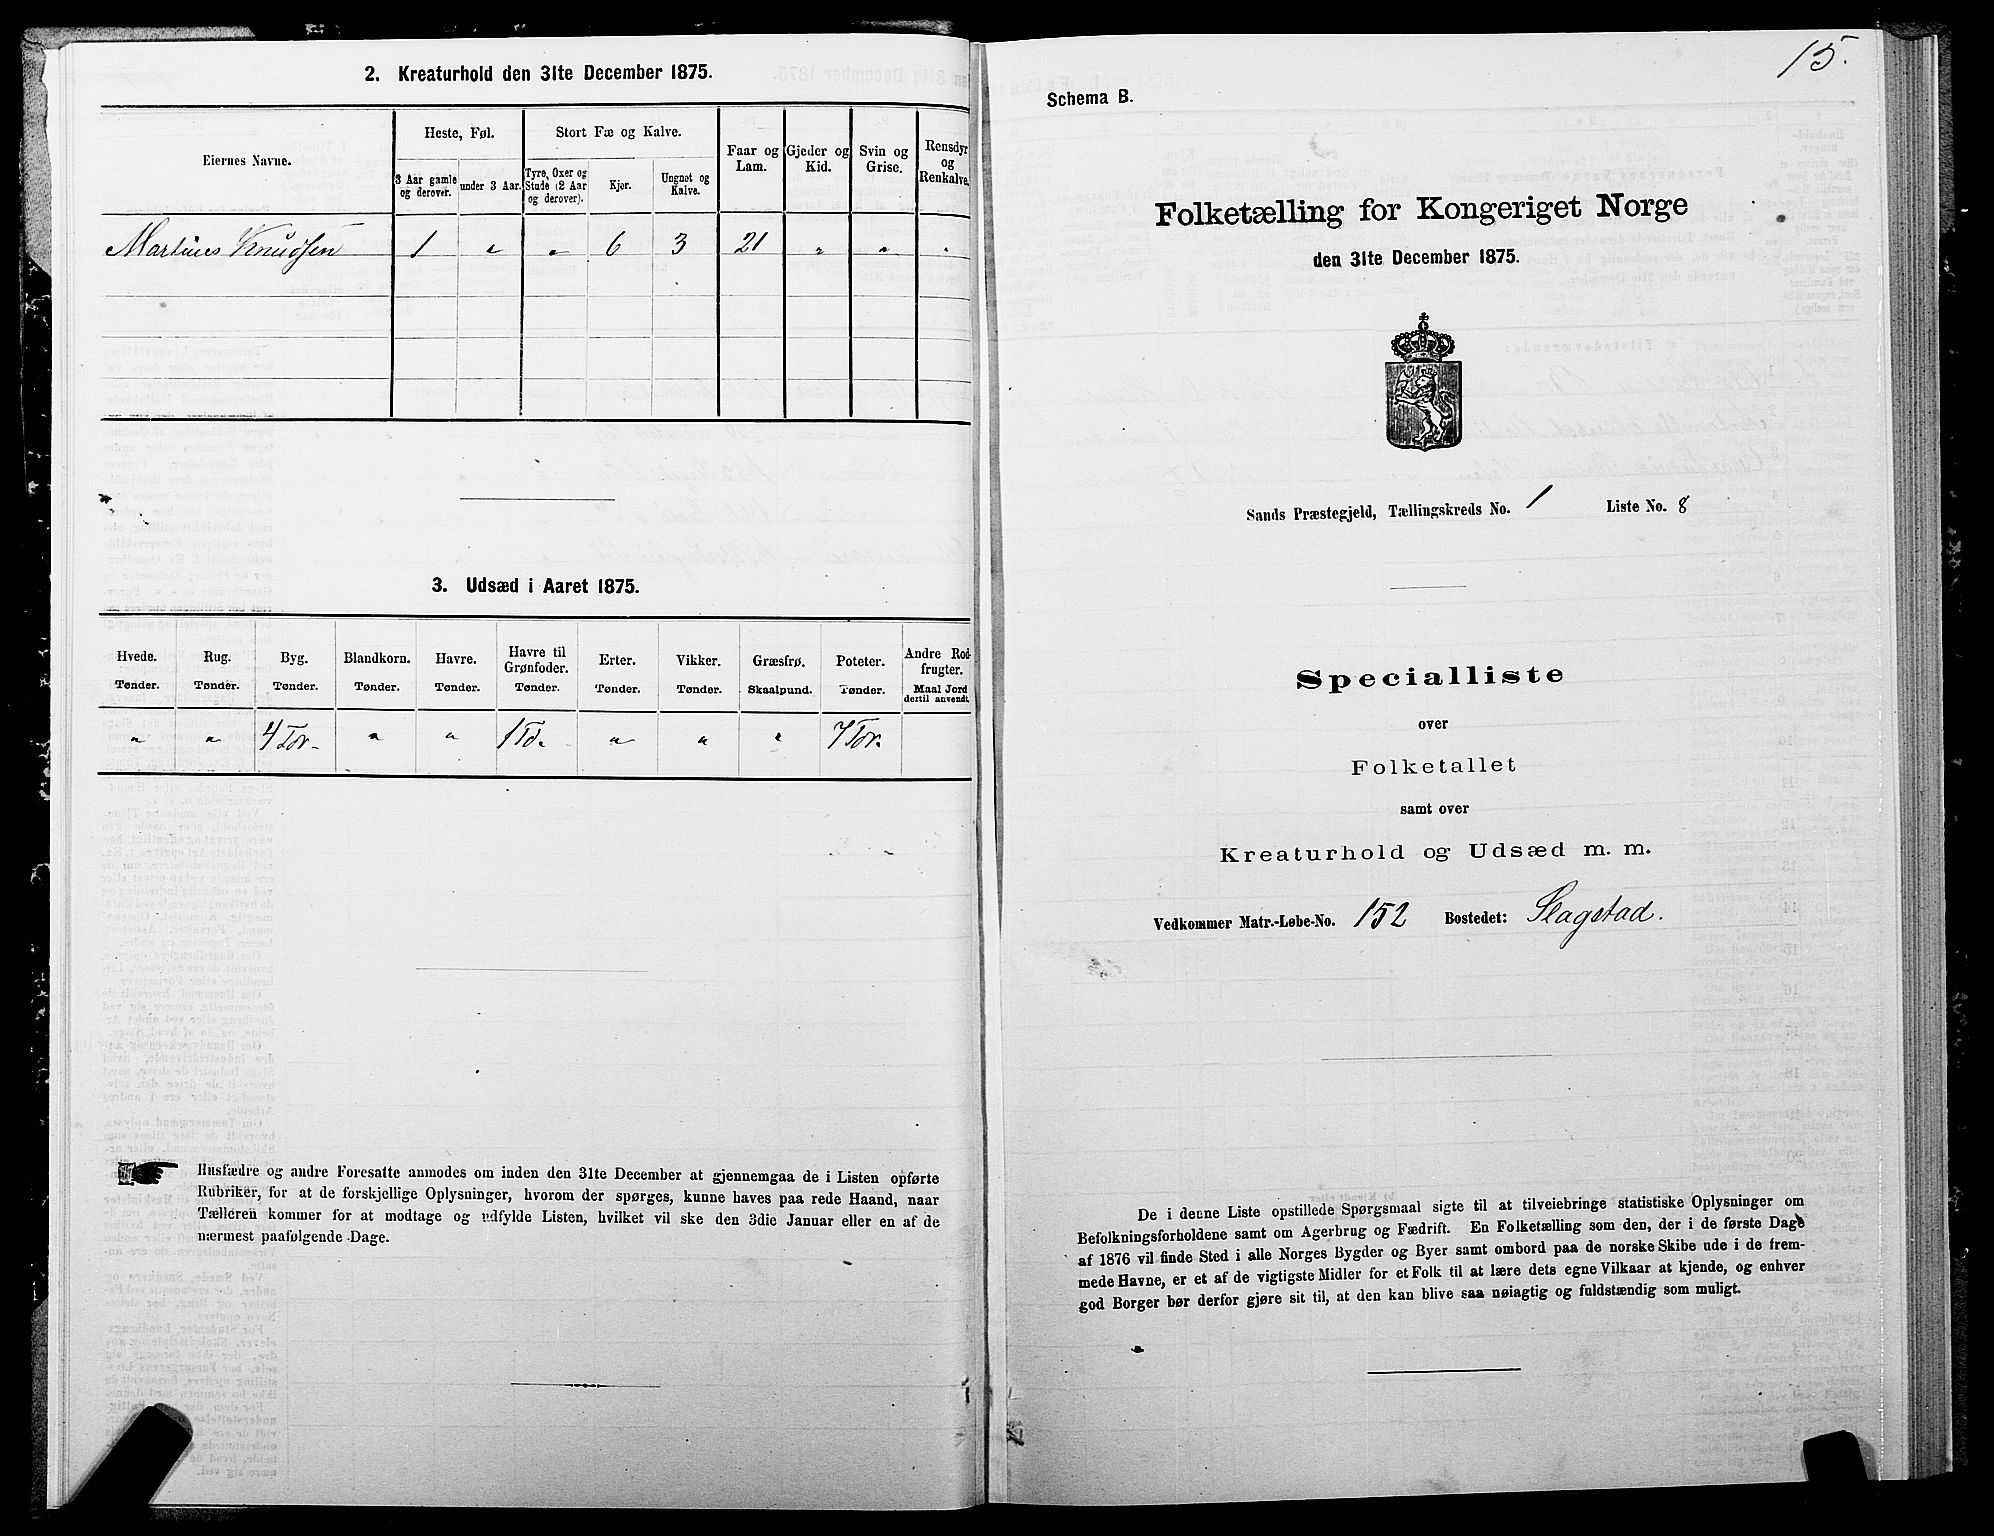 2. Kreaturhold den 31te December 1875.
Eiernes Navne.
Heste, Føl.
Stort Fæ og Kalve.
Faar og Lam.
Gjeder og Kid.
Svin og Grise.
Rensdyr og Renkalve.
3 Aar gamle og derover.
under 3 Aar.
Tyre, Oxer og Stude (2 Aar og derover).
Kjør.
Ungnøt og Kalve.
Martines Knudsen 1 " " 6 3 21 " " "
3. Udsæd i Aaret 1875.
Hvede. Rug. Byg. Blandkorn. Havre. Havre til Grønfoder. Erter. Vikker. Græsfrø. Poteter. Andre Rodfrugter.
Tønder. Tønder. Tønder. Tønder. Tønder. Tønder. Tønder. Tønder. Skaalpund. Tønder. Maal Jord dertil anvendt.
" " 4 Tdr. " " 1 Td. " " " 7 Tdr.
Husfædre og andre Foresatte anmodes om inden den 31te December at gjennemgaa de i Listen opførte
Rubriker, for at de forskjellige Oplysninger, hvorom der spørges, kunne haves paa rede Haand, naar
Tælleren kommer for at modtage og udfylde Listen, hvilket vil ske den 3die Januar eller en af de
nærmest paafølgende Dage.
15.
Schema B.
Folketælling for Kongeriget Norge
den 31te December 1875.
Sands Præstegjeld, Tællingskreds No. 1 Liste No. 8
Specialliste
over
Folketallet
samt over
Kreaturhold og Udsæd m. m.
Vedkommer Matr.-Løbe-No. 152 Bostedet: Slagstad.
De i denne Liste opstillede Spørgsmaal sigte til at tilveiebringe statistiske Oplysninger om
Befolkningsforholdene samt om Agerbrug og Fædrift. En Folketælling som den, der i de første Dage
af 1876 vil finde Sted i alle Norges Bygder og Byer samt ombord paa de norske Skibe ude i de frem-
mede Havne, er et af de vigtigste Midler for et Folk til at lære dets egne Vilkaar at kjende, og enhver
god Borger bør derfor gjøre sit til, at den kan blive saa nøiagtig og fuldstændig som muligt.